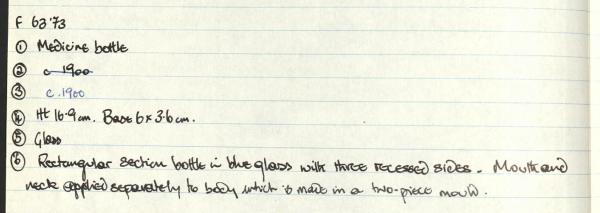 F 63.73
① Medicine bottle
② c 1900
③ c. 1900
④ Ht 16.9 cm. Base 6 x 3.6 cm.
⑤ Glass
⑥ Rectangular section bottle in blue glass with three recessed sides. Mouth and
neck applied separately to body which is made in a two-piece mould.